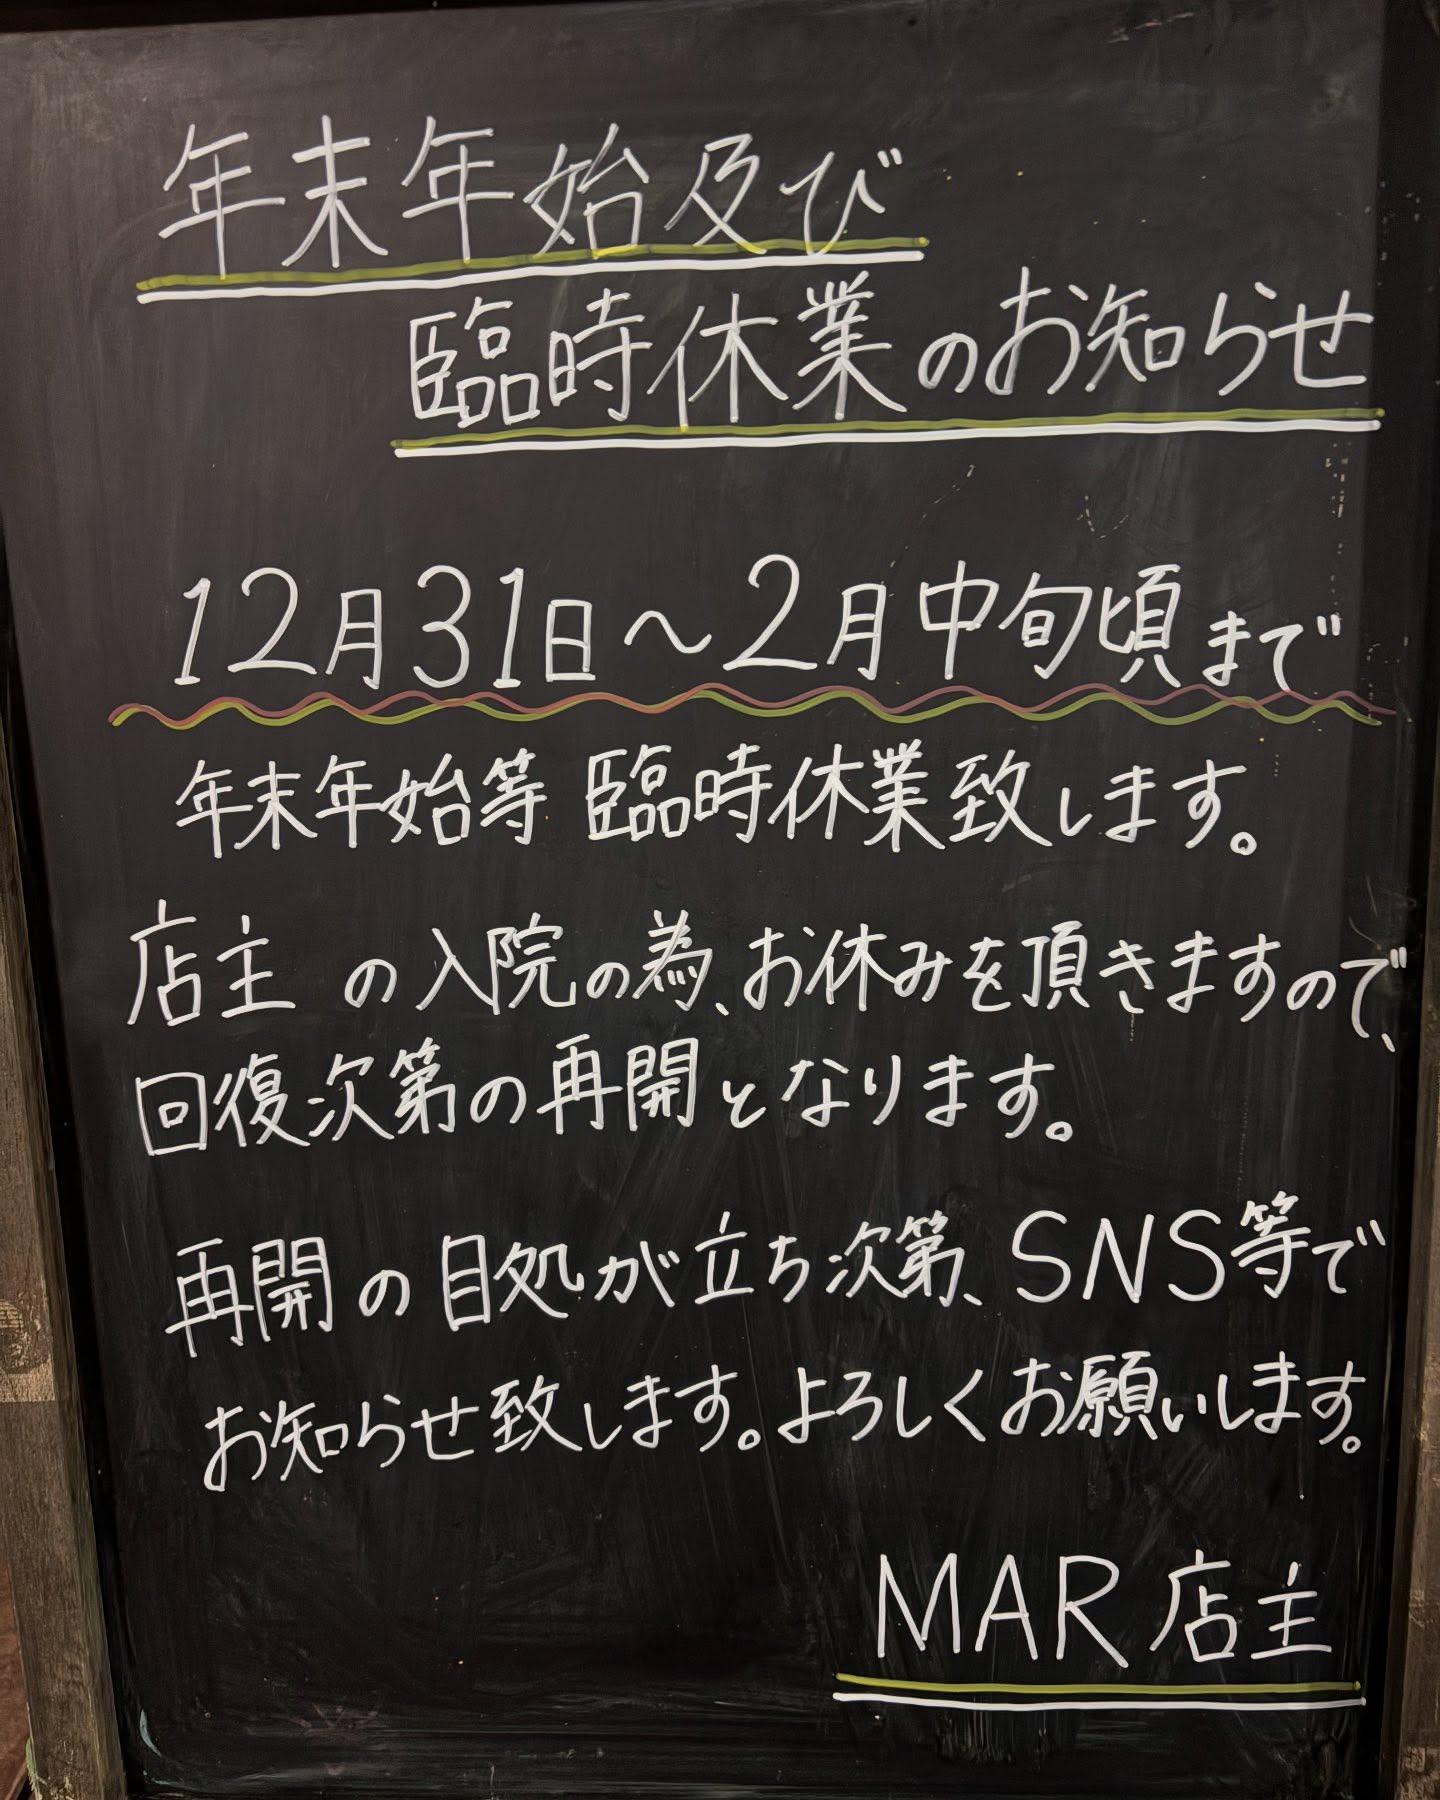 年末年始及び
臨時休業のお知らせ
12月31日～2月中旬頃まで
年末年始等 臨時休業致します。
店主 の入院の為、お休みを頂きますので、
回復次第の再開となります。
再開の目処が立ち次第、SNS等で
お知らせ致します。よろしくお願いします。
MAR 店主